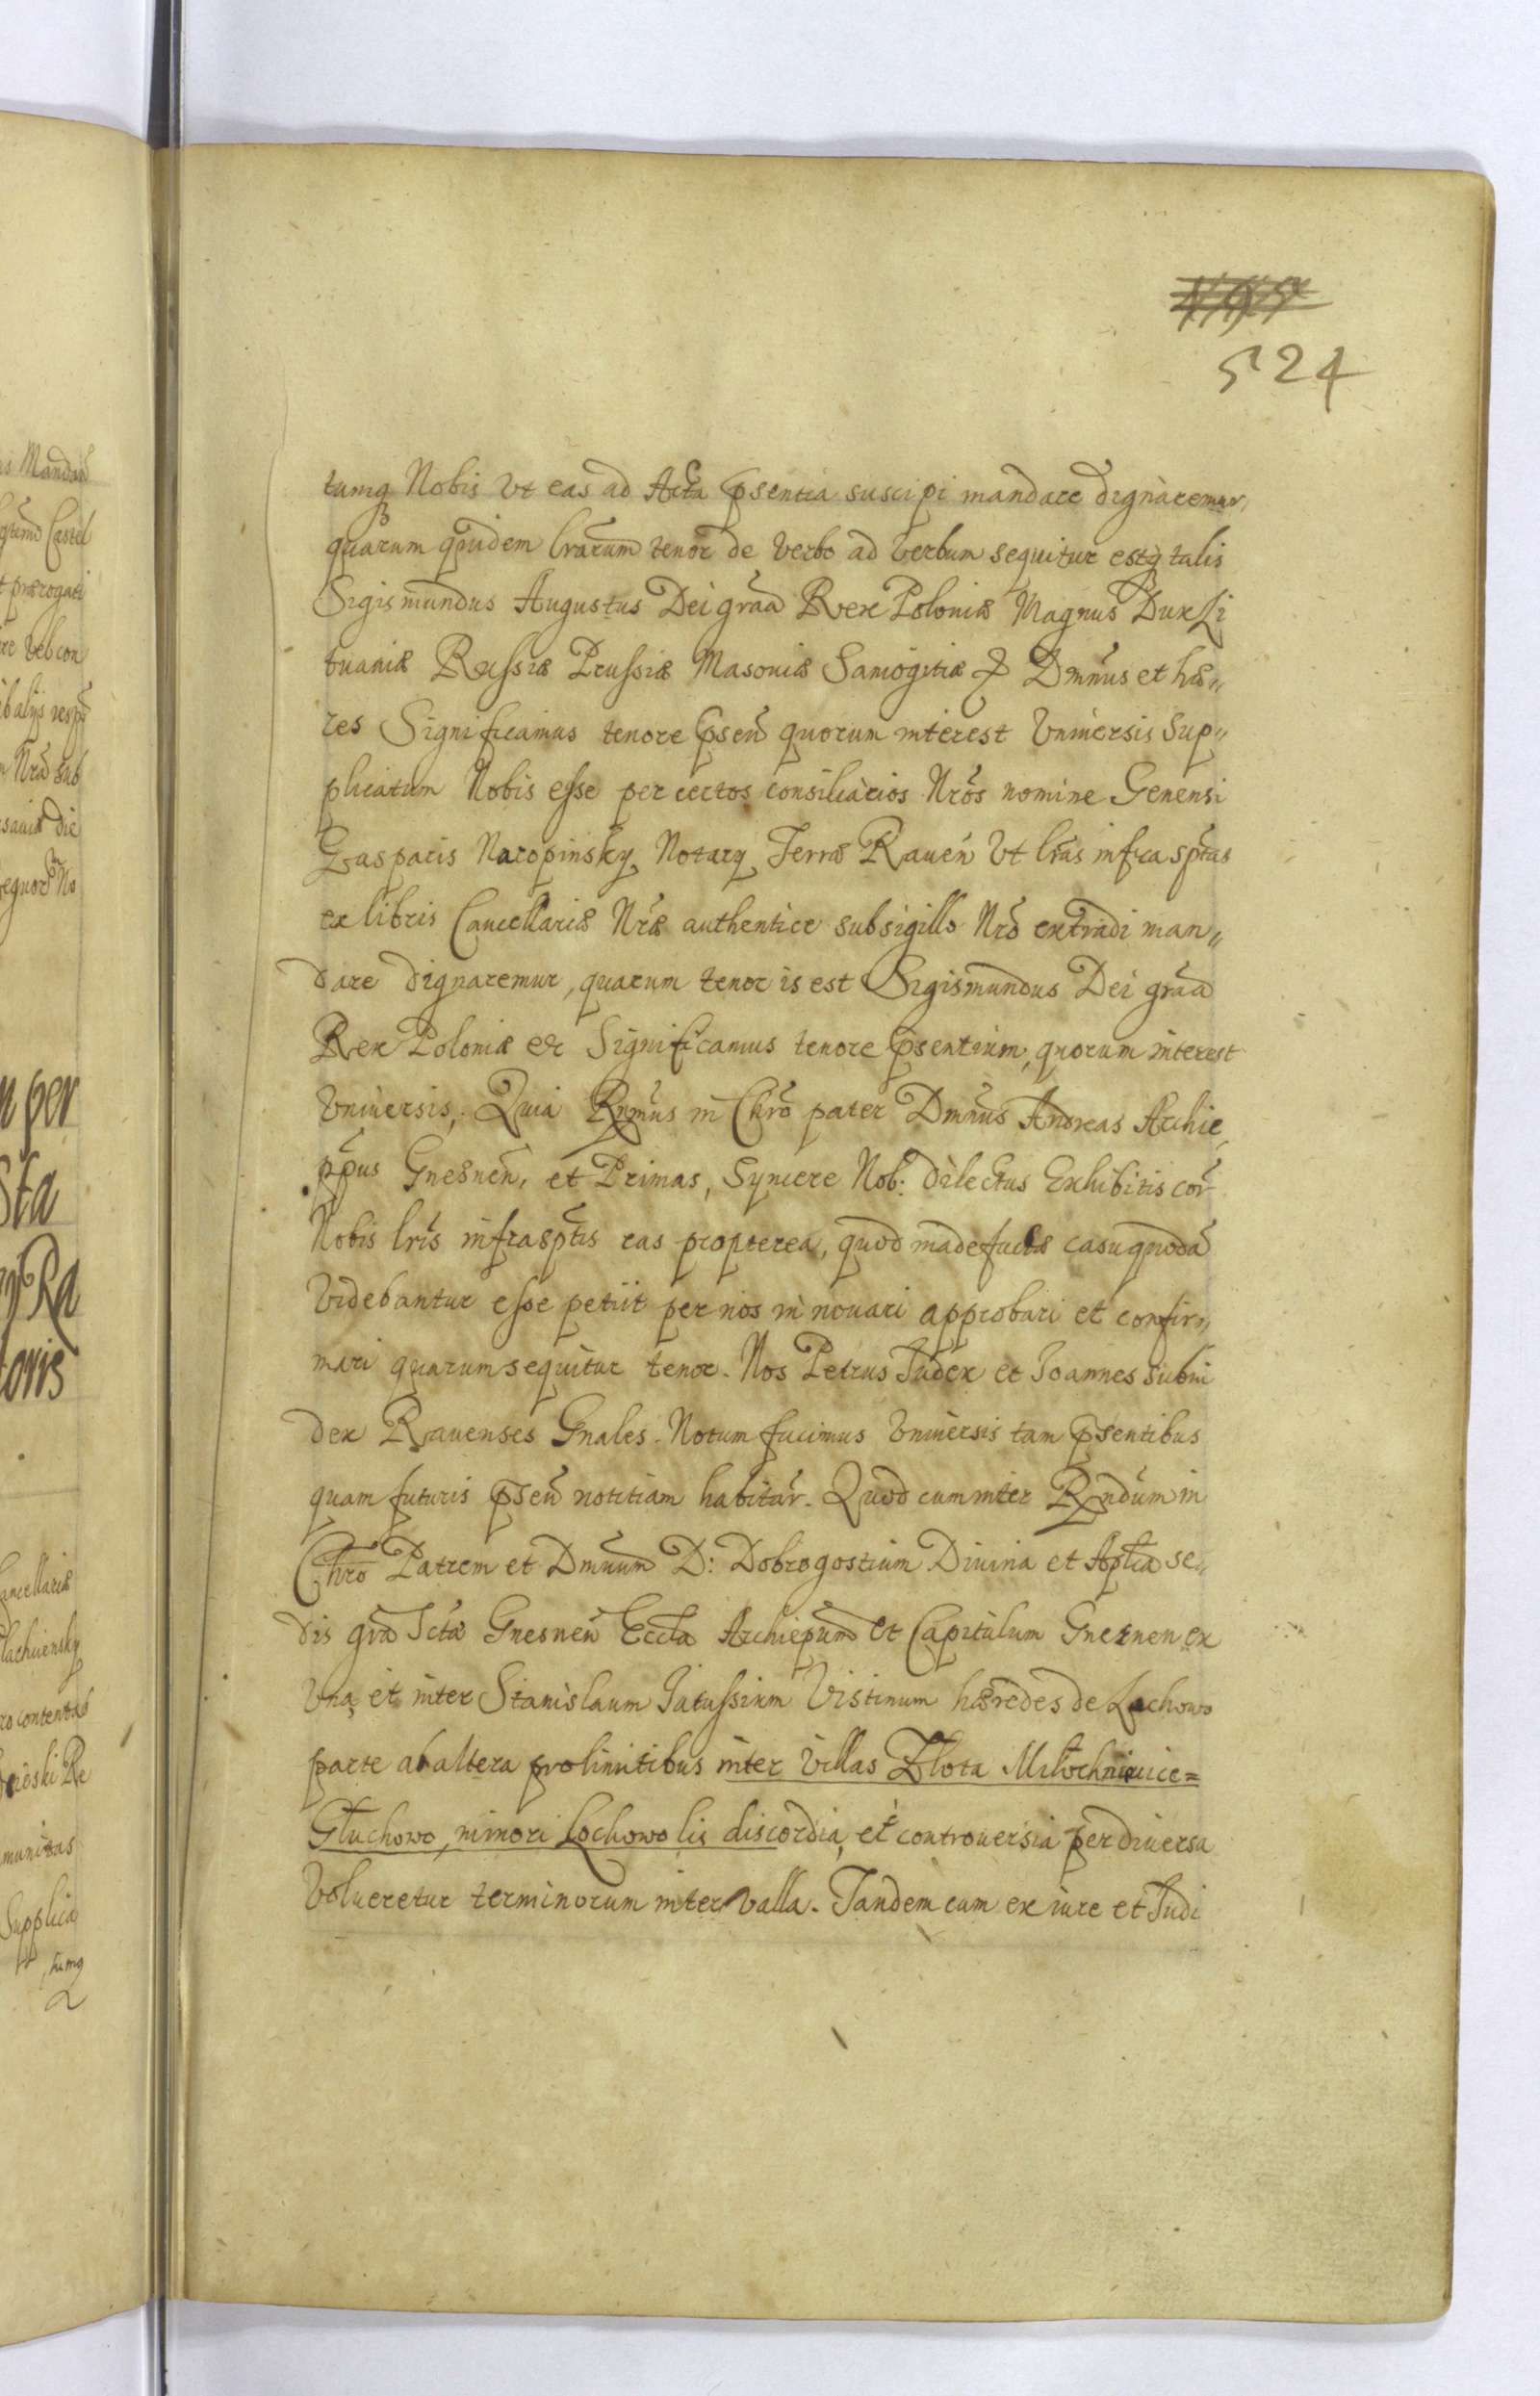 524
tumq Nobis Vt eas ad Acta psentia suscipi mandare dignaremur,
quarum quidem lrarum tenor de Verbo ad Verbum sequitur estq talis
Sigismundus Augustus Dei graa Rex Poloniæ Magnus Dux Li
tuaniæ Russiæ Prussiæ Masoviæ Samogitiæ & Dmnus et hæ„
res Significamus tenore psen quorum interest Vniuersis Sup„
plicatum Nobis esse per certos consiliarios Nros nomine Genensi
Gasparis Naropinsky Notary Terræ Rauen Vt lras infra sptas
ex libris Cancellariæ Nræ authentice sub sigillo Nro extradi man„
dare dignaremur, quarum tenor is est Sigismundus Dei graa
Rex Poloniæ etc Significamus tenore psentium, quorum interest
Vniuersis, Quia Rnmus in Chro pater Dmnus Andreas Archie„
ppus Gnesnen, et Primas, Syncere Nob: dilectus Exhibitis cor
Nobis lris infrasptis eas propterea, quod madefactæ casu quoda
Videbantur esse petiit per nos innouari approbari et confir„
mari quarum sequitur tenor. Nos Petrus Judex et Joannes Subiu
dex Rauenses Gnales. Notum facimus Vniuersis tam psentibus
quam futuris psen notitiam habitur. Quod cum inter Rndum in
Chro Patrem et Dmnum D: Dobrogostium Divina et Aplca se„
dis gra Scta Gnesnen Eccla Archiepum et Capitulum Gnesnen ex
Vna, et inter Stanislaum Jatussium Vistinum hæredes de Lochowo
parte ab altera pro limitibus inter Villas Złota Miłochniewice=
Głuchowo, minori Lochowo lis discordia, et controuersia per diuersa
Volueretur terminorum interualla. Tandem cum ex iure et Judi